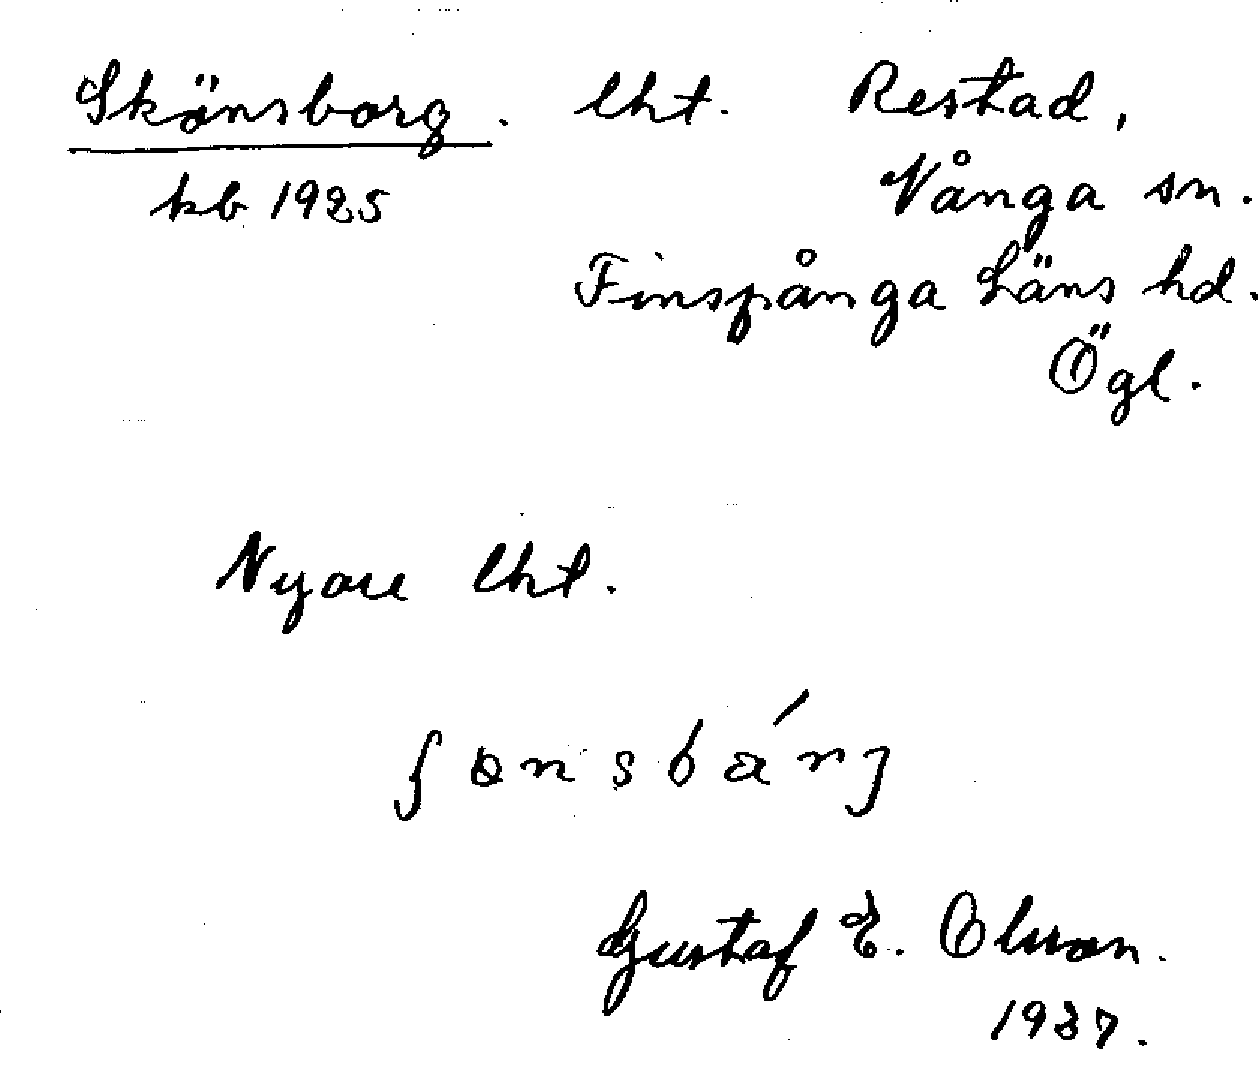 Skönsborg. lht. Restad,
kb 1925 Vånga sn.
Finspånga Läns hd.
Ögl.
Nyare lht.
Gustaf E. Olsson.
1937.